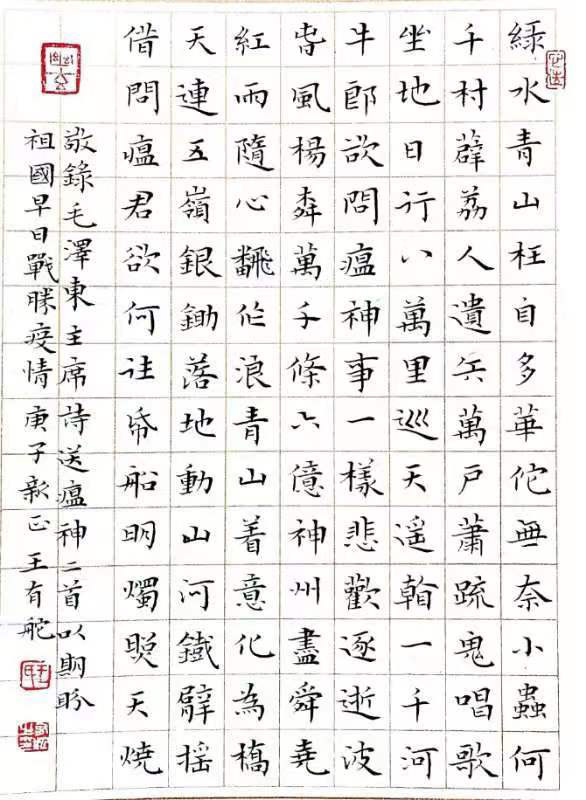 綠水青山枉自多華佗無奈小蟲何
千村薜荔人遺矢萬戶蕭疏鬼唱歌
坐地日行八萬里巡天遥看一千河
牛郎欲問瘟神事一樣悲歡逐逝波
春風楊柳萬千條六億神州盡舜堯
紅雨隨心翻作浪青山着意化為橋
天連五嶺銀鋤落地動山河鐵臂摇
借問瘟君欲何往紙船明燭照天燒
敬錄毛澤東主席詩送瘟神二首以期盼
祖國早日戰勝疫情 庚子新正王有舵